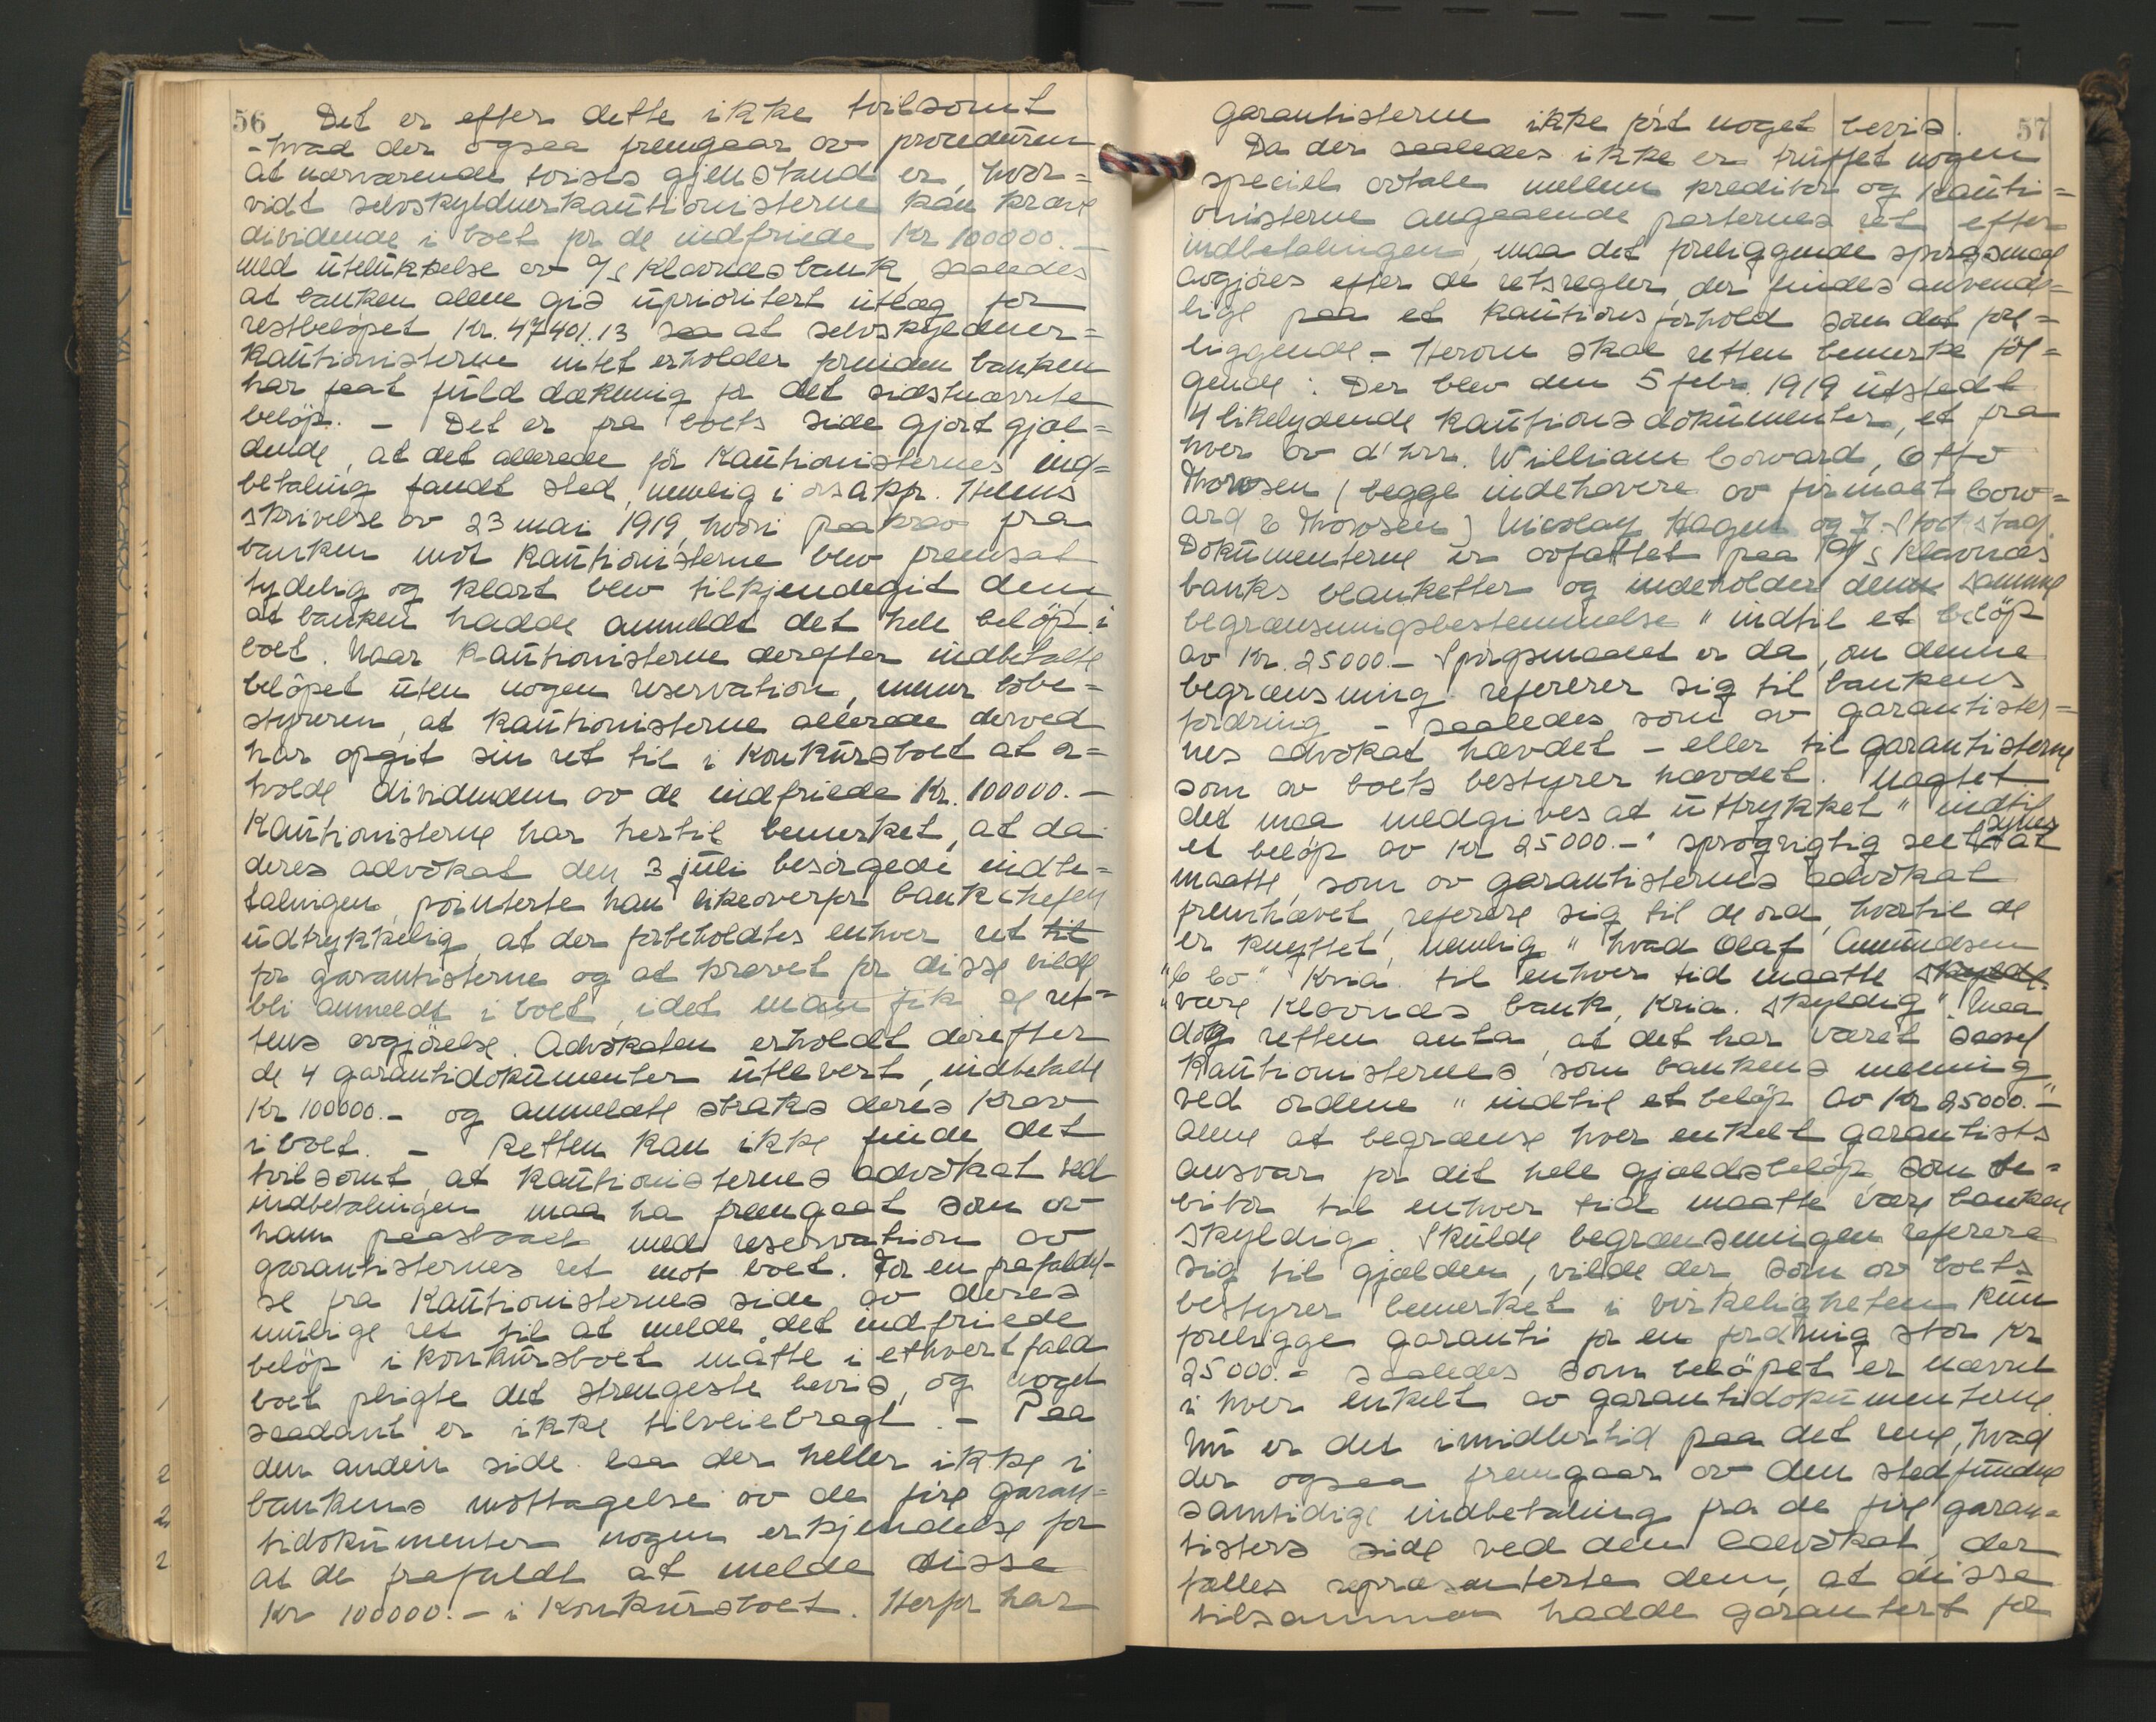 56
Det er efter dette ikke tvilsomt
- hvad der ogsaa fremgaar av proceduren
at nærværende tvists gjenstand er, hvor=
vidt selvskyldnerkautionisterne kan kræve
dividende i boet for de indfriede Kr 100000.-
med utelukkelse av A/S Klavnæs bank saaledes
at banken alene gis uprioritert utlæg for
restbeløpet Kr. 47401.13 saa at selvskyldner=
kautionisterne intet erholder forinden banken
har faat fuld dækning for det sidstnævnte
beløp. - Det er fra boets side gjort gjæl=
dende, at det allerede før kautionisternes ind=
betaling fandt sted, nemlig i o.r.s.akf. Helms
skrivelse av 23 mai 1919, hvori paakrav fra
banken mot kautionisterne blev fremsat
tydelig og klart blev tilkjendegit dem
at banken hadde anmeldt det hele beløp i
boet. Naar kautionisterne derefter indbetalte
beløpet uten nogen reservation, mener bobe=
styreren, at kautionisterne allerede derved
har opgit sin ret til i konkursboet at er=
holde dividenden av de indfriede Kr. 100000.-
Kautionisterne har hertil bemerket, at da
deres advokat den 3 juli besørgede indbe=
talingen, pointerte han likeoverfor bankchefen
udtrykkelig, at der forbeholdtes enhver ret til
for garantisterne og at kravet for disse vilde
bli anmeldt i boet, idet man fik se ret=
tens avgjørelse. Advokaten erholdt derefter
de 4 garantidokumenter utlevert, indbetalte
Kr 100000.- og anmeldte straks deres krav
i boet. - Retten kan ikke finde det
tvilsomt, at kautionisternes advokat ved
indbetalingen maa ha fremgaat som av
ham paastaaet med reservation av
garantisternes ret mot boet. For en frafaldel=
se fra kautionisternes side av deres
mulige ret til at melde det indfriede
beløp i konkursboet måtte i ethvert fald
boet pligte det strengeste bevis, og noget
saadant er ikke tilveiebragt. - Paa
den anden side laa der heller ikke i
bankens mottagelse av de fire garan=
tidokumenter nogen erkjendelse for
at de frafaldt at melde disse
Kr 100000.- i konkursboet. Herfor har
57
garantisterne ikke ført noget bevis.
Da der saaledes ikke er truffet nogen
speciel avtale mellem kreditor og kauti=
onisterne angaaende parternes ret efter
indbetalingen, maa det foreliggende spørgsmaal
avgjøres efter de retsregler, der findes anvende=
lige paa et kautionsforhold som det fore=
liggende. - Herom skal retten bemerke føl=
gende: Der blev den 5 febr. 1919 utstedt
4 likelydende kautionsdokumenter, et fra
hver av d'hrr. William Coward, Otto
Thoresen (begge indehavere av firmaet Cow=
ard & Thoresen) Nicolay Hagen og J. Stodstad.
Dokumenterne er avfattet paa A/S Klavnæs
banks blanketter og indeholder denne samme
begrænsningsbestemmelse "indtil et beløp
av Kr. 25000.- Spørgsmaalet er da, om denne
begrænsning refererer sig til bankens
fordring - saaledes som av garantister=
nes advokat hævdet - eller til garantisterne
som av boets bestyrer hævdet. Uagtet
det maa medgives at uttrykket "indtil
et beløp av Kr 25000.-" sprogrigtig seet synes at
maatte, som av garantisternes advokat
fremhævet, referere sig til de ord, hvortil de
er knyttet, nemlig "hvad Olaf Amundsen
"& Co." Kria. til enhver tid maatte skylde
"være Klavnæs bank, Kria. skyldig". Maa
dog retten anta, at det har været saavel
kautionisternes som bankens mening
ved ordene "indtil et beløp av Kr 25000.-"
alene at begrænse hver enkelt garantists
ansvar for det hele gjældsbeløp, som de=
bitor til enhver tid maatte være banken
skyldig. Skulde begrænsningen referere
sig til gjælden, vilde der som av boets
bestyrer bemerket i virkeligheten kun
foreligge garanti for en fordring stor Kr
25000.- saaledes som beløpet er nævnt
i hver enkelt av garantidokumenterne.
Nu er det imidlertid paa det rene, hvad
der ogsaa fremgaar av den stedfundne
samtidige indbetaling fra de fire garan=
tisters side ved den advokat, der
fælles repræsenterte dem, at disse
tilsammen hadde garantert for